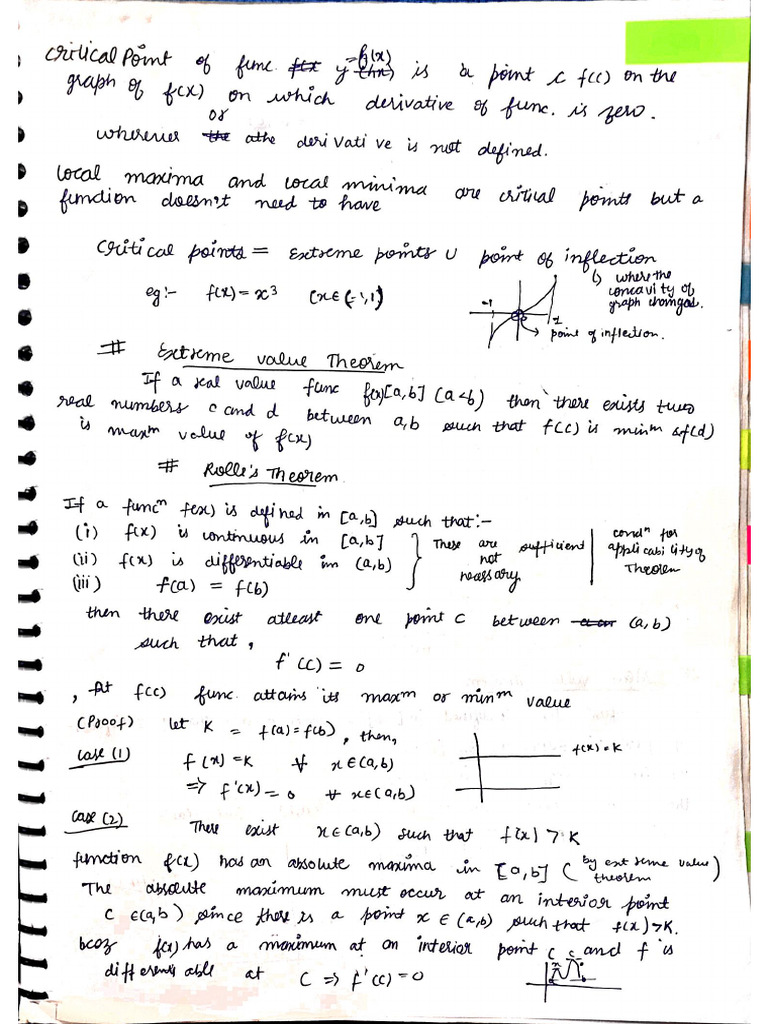 Critical Point of func. y = f(x) is a point c f(c) on the
graph of f(x) on which derivative of func. is zero.
or
wherever the derivative is not defined.
Local maxima and local minima are critical points but a
function doesn't need to have
critical points = extreme points ∪ point of inflection
eg:- f(x) = x³ (x∈(-1,1)
↳ where the
concavity of
graph changed.
-1
1
→ point of inflection.
# Extreme value Theorem
If a real value func f(x)[a,b] (a<b) then there exists two
real numbers c and d between a,b such that f(c) is minᵐ & f(d)
is maxᵐ value of f(x)
# Rolle's Theorem
If a funcⁿ f(x) is defined in [a,b] such that:-
(i) f(x) is continuous in [a,b]
(ii) f(x) is differentiable in (a,b)
(iii) f(a) = f(b)
These are sufficient
not
necessary
condⁿ for
applicability of
Theorem
then there exist atleast one point c between (a,b)
such that,
f'(c) = 0
, At f(c) func. attains its maxᵐ or minᵐ value
(Proof) let K = f(a)=f(b), then,
Case (1) f(x)=K ∀ x∈(a,b)
⇒ f'(x)=0 ∀ x∈(a,b)
f(x)=K
Case (2) There exist x∈(a,b) such that f(x) > K
function f(x) has an absolute maxima in [a,b] (by extreme value
theorem)
The absolute maximum must occur at an interior point
c ∈(a,b) since there is a point x ∈ (a,b) such that f(x)>K.
bcoz f(x) has a maximum at an interior point c and f is
differentiable at c ⇒ f'(c)=0
c c